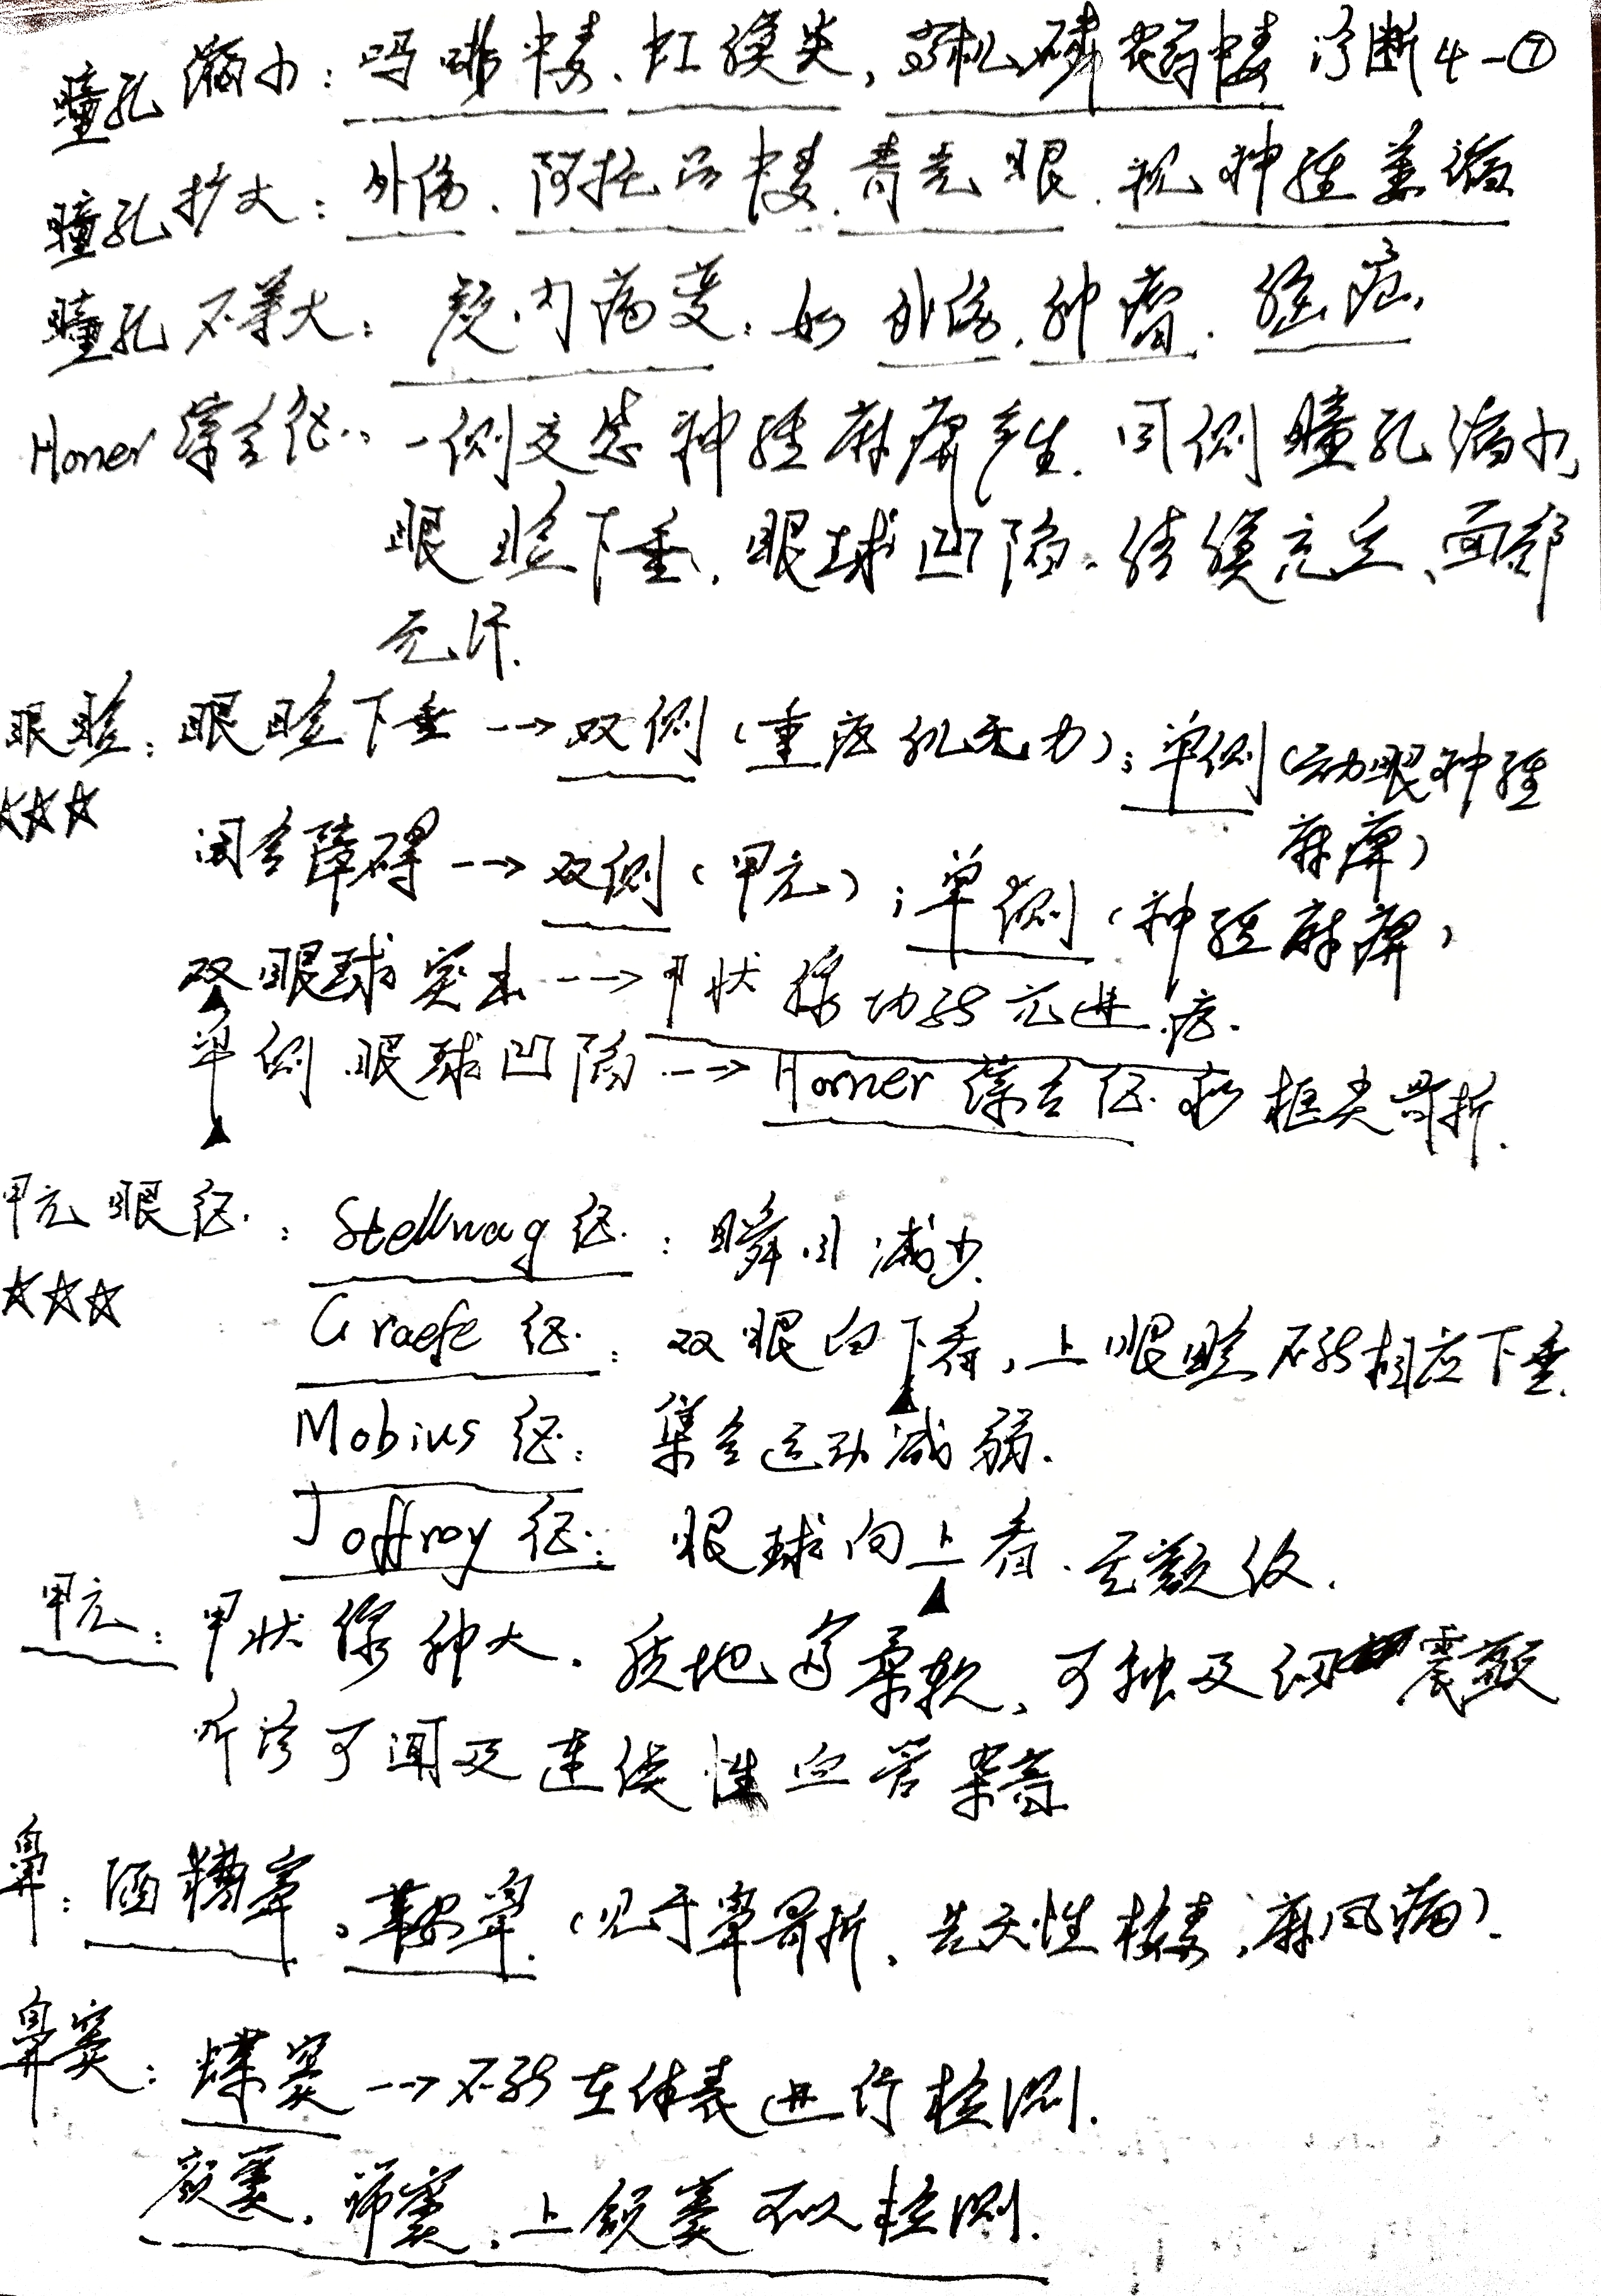 瞳孔缩小：吗啡中毒、虹膜炎，有机磷农药中毒 诊断4-⑦
瞳孔扩大：外伤、阿托品中毒、青光眼、视神经萎缩
瞳孔不等大：颅内病变：如外伤、肿瘤、脑疝，
Horner综合征：一侧交感神经麻痹产生．同侧瞳孔缩小，
眼睑下垂，眼球凹陷、结膜充血、面部
无汗．
眼睑：眼睑下垂-→双侧（重症肌无力）；单侧（动眼神经
麻痹）
☆☆☆
闭合障碍-→双侧（甲亢）；单侧（神经麻痹）
双眼球突出-→甲状腺功能亢进症．
单侧眼球凹陷-→Horner综合征和眶尖骨折．
甲亢眼征：Stellwag征：瞬目减少．
☆☆☆
Graefe征：双眼向下看，上眼睑不能相应下垂．
Mobius征：集合运动减弱．
Joffroy征：眼球向上看．无额纹．
甲亢：甲状腺肿大．质地多柔软，可触及细震颤
听诊可闻及连续性血管杂音
鼻：酒糟鼻、鞍鼻（见于鼻骨折、先天性梅毒，麻风病）．
鼻窦：蝶窦-→不能在体表进行检测．
额窦、筛窦、上颌窦可以检测．